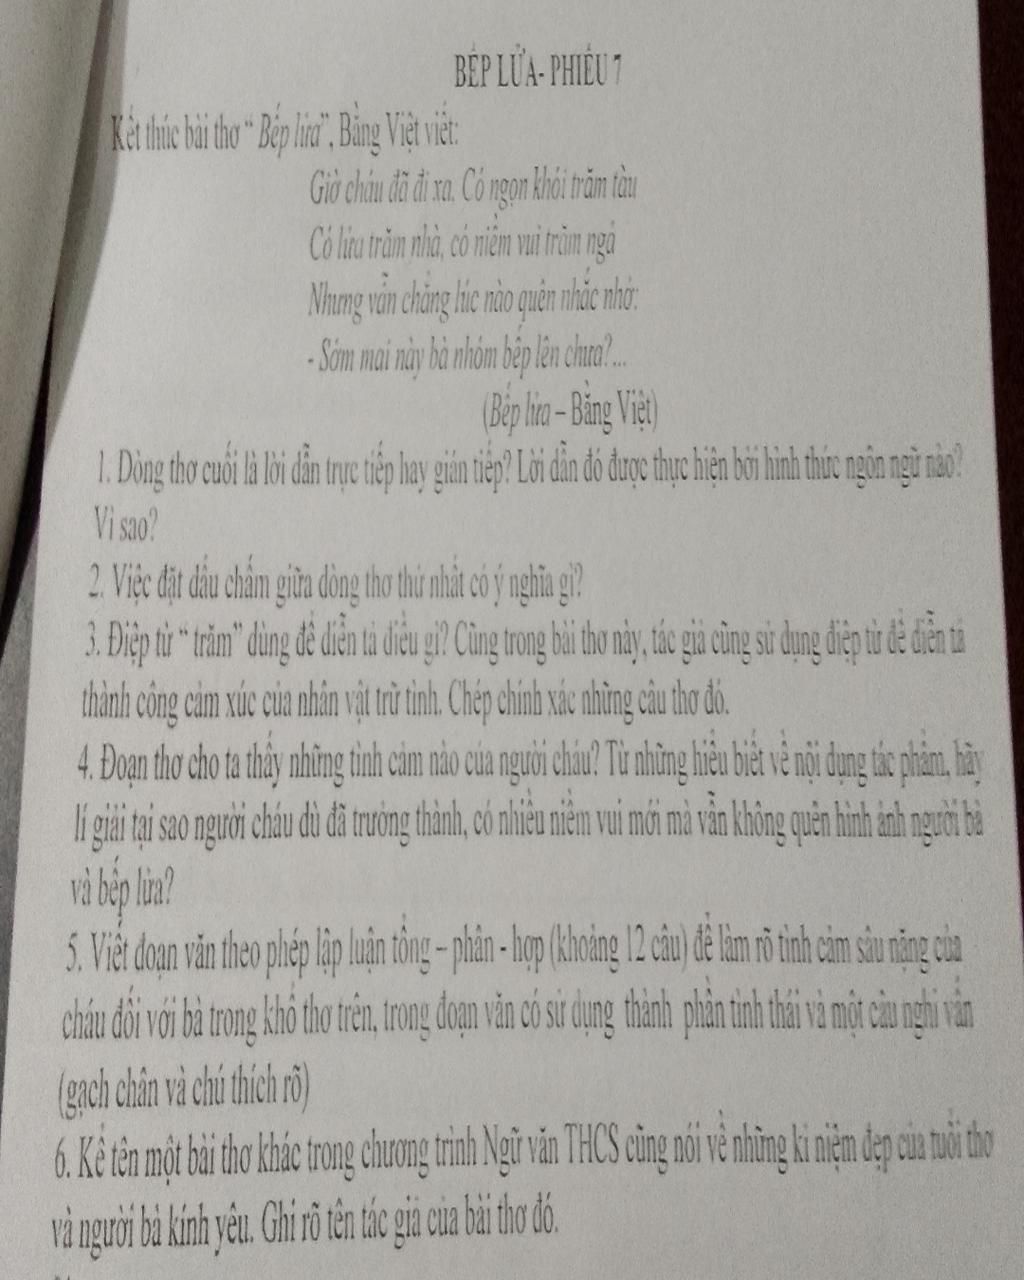 BẾP LỬA- PHIẾU 7
Kết thúc bài thơ “ Bếp lửa”, Bằng Việt viết:
Giờ cháu đã đi xa. Có ngọn khói trăm tàu
Có lửa trăm nhà, có niềm vui trăm ngả
Nhưng vẫn chẳng lúc nào quên nhắc nhở:
- Sớm mai này bà nhóm bếp lên chưa?...
(Bếp lửa – Bằng Việt)
1. Dòng thơ cuối là lời dẫn trực tiếp hay gián tiếp? Lời dẫn đó được thực hiện bởi hình thức ngôn ngữ nào?
Vì sao?
2. Việc đặt dấu chấm giữa dòng thơ thứ nhất có ý nghĩa gì?
3. Điệp từ “ trăm” dùng để diễn tả điều gì? Cũng trong bài thơ này, tác giả cũng sử dụng điệp từ để diễn tả
thành công cảm xúc của nhân vật trữ tình. Chép chính xác những câu thơ đó.
4. Đoạn thơ cho ta thấy những tình cảm nào của người cháu? Từ những hiểu biết về nội dụng tác phẩm, hãy
lí giải tại sao người cháu dù đã trưởng thành, có nhiều niềm vui mới mà vẫn không quên hình ảnh người bà
và bếp lửa?
5. Viết đoạn văn theo phép lập luận tổng – phân - hợp (khoảng 12 câu) để làm rõ tình cảm sâu nặng của
cháu đối với bà trong khổ thơ trên, trong đoạn văn có sử dụng thành phần tình thái và một câu nghi vấn
(gạch chân và chú thích rõ)
6. Kể tên một bài thơ khác trong chương trình Ngữ văn THCS cũng nói về những kỉ niệm đẹp của tuổi thơ
và người bà kính yêu. Ghi rõ tên tác giả của bài thơ đó.